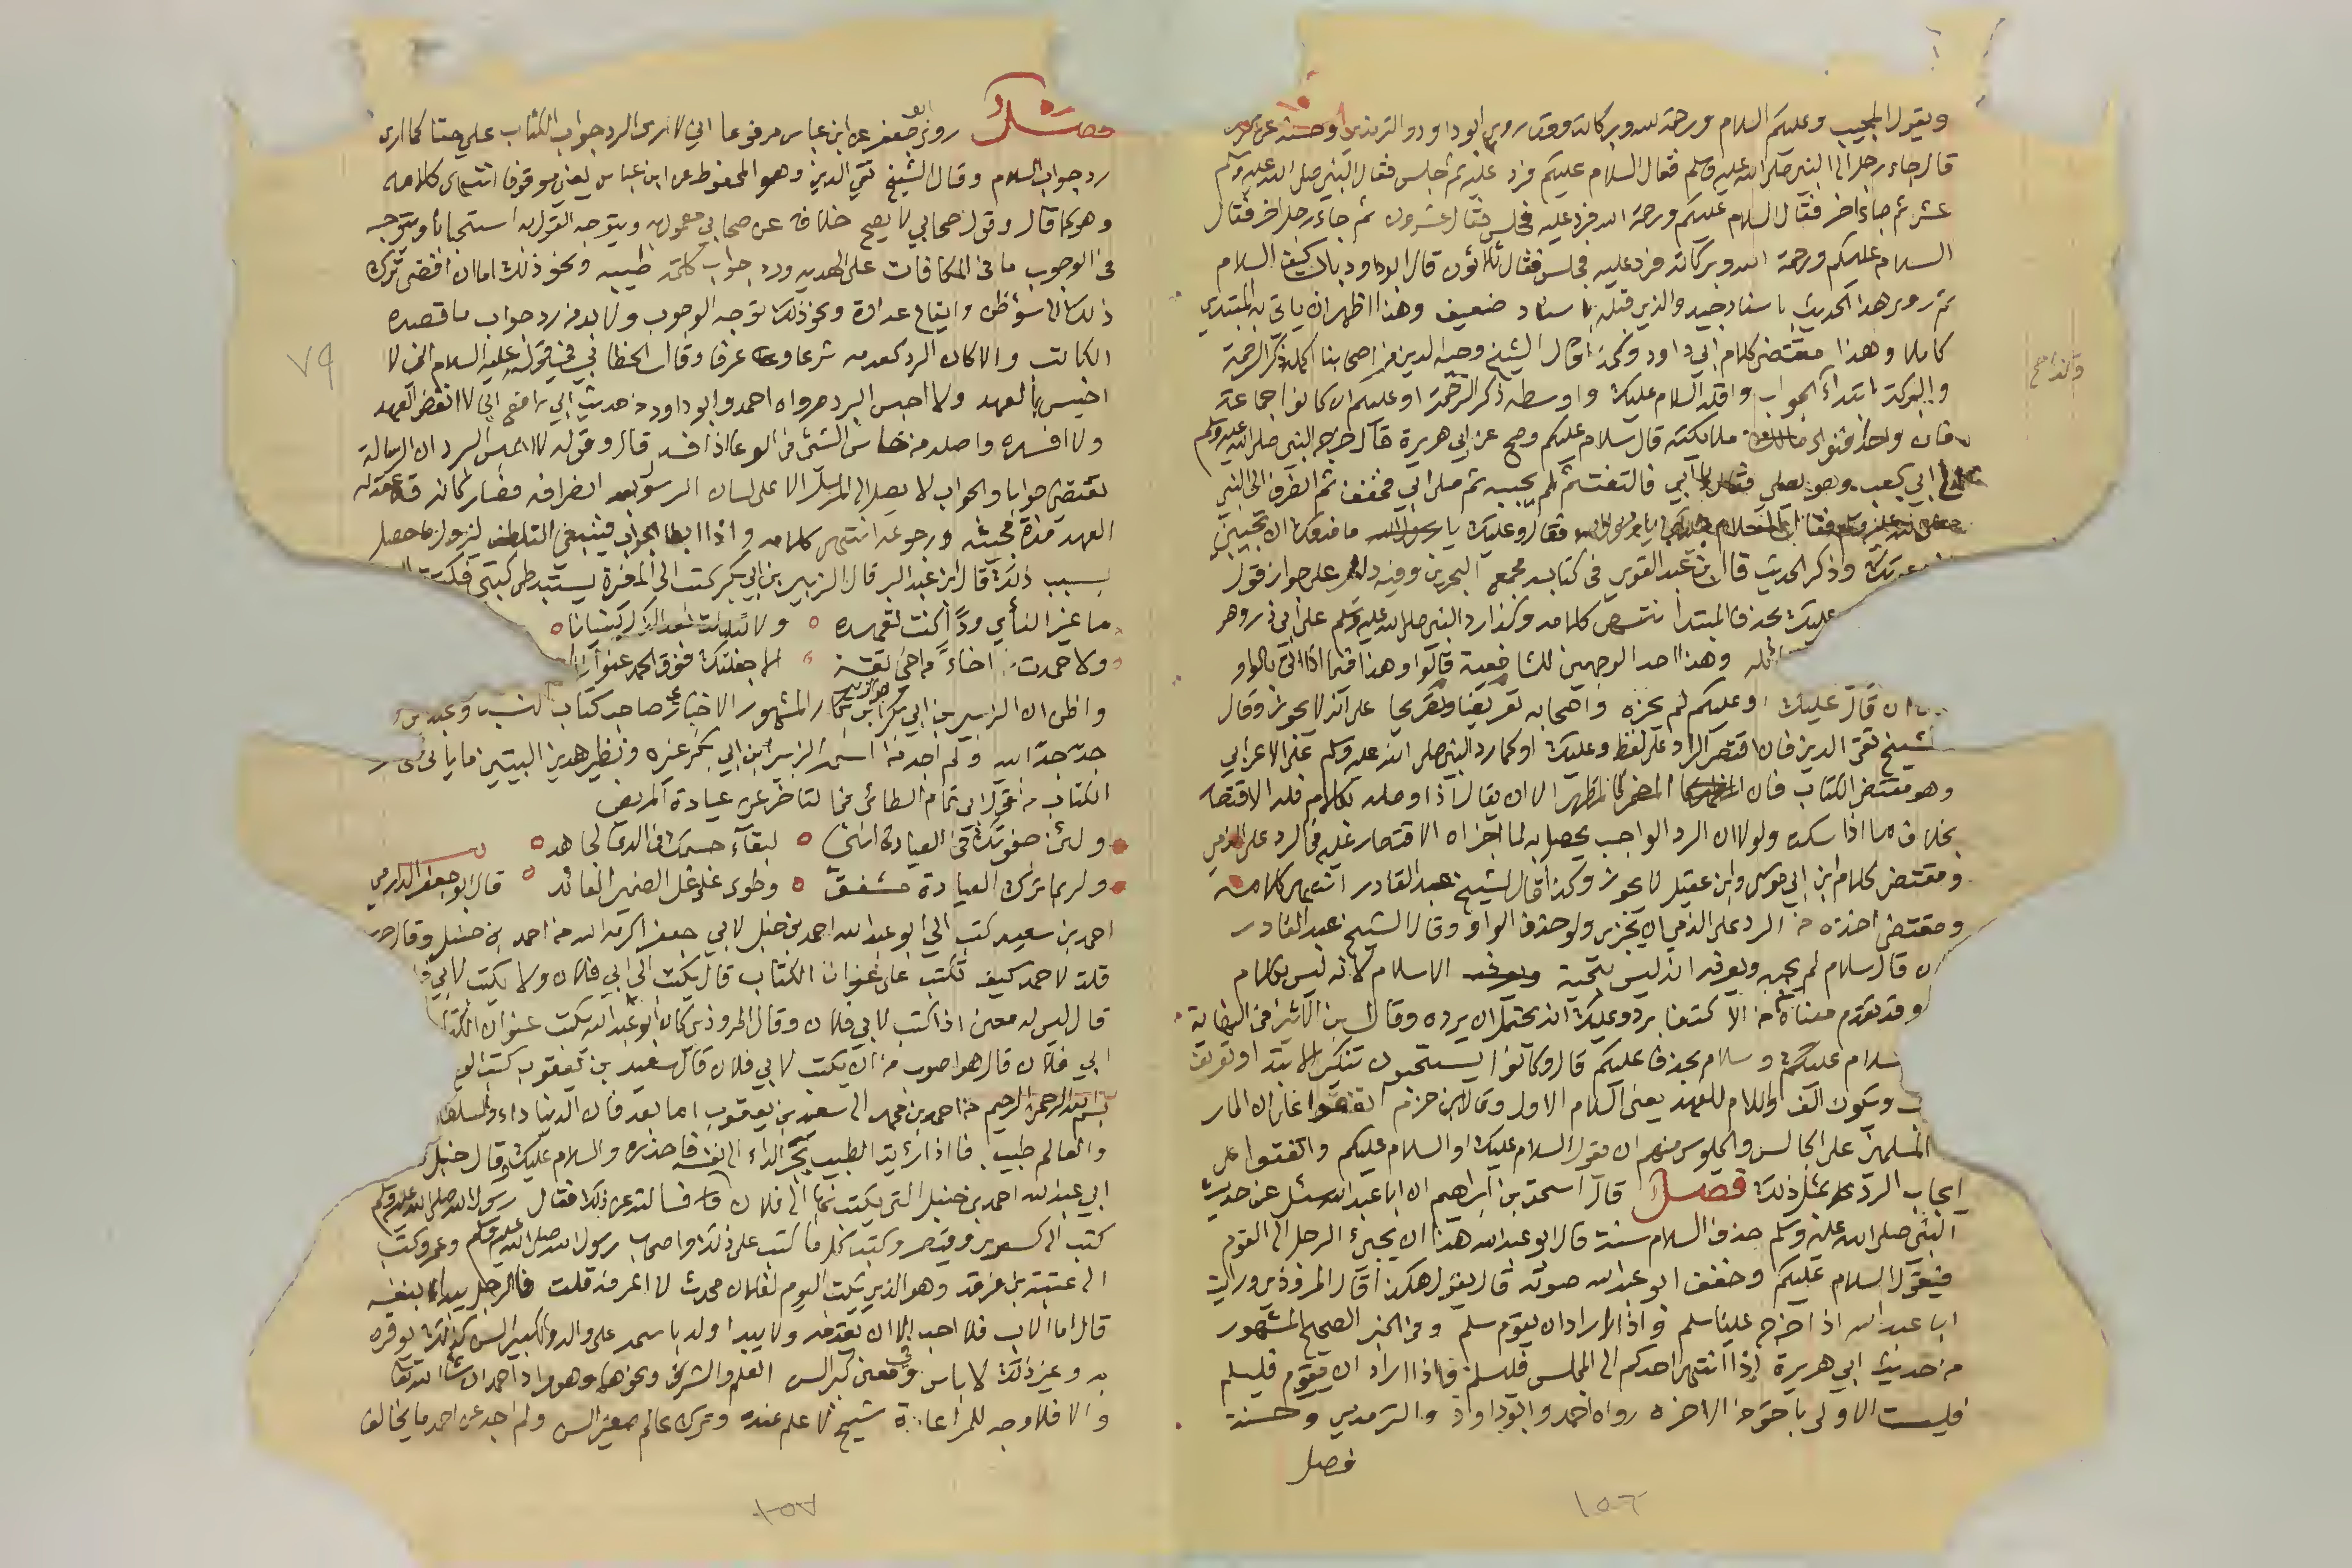 ويقول المجيب وعليكم السلام ورحمة الله وبركاته وقد روى ابو داود والترمذي وحسنه عن
قال جاء رجل الى النبي صلى الله عليه وسلم فقال السلام عليكم فرد عليه ثم جلس فقال النبي صلى الله عليه وسلم
عشر ثم جاء اخر فقال السلام عليكم ورحمة الله فرد عليه فجلس فقال عشرون ثم جاء رجل اخر فقال
السلام عليكم ورحمة الله وبركاته فرد عليه فجلس فقال ثلاثون قال ابو داود باب كيف السلام
ثم روى هذا الحديث باسناد جيد والذي قبله باسناد ضعيف وهذا اظهر ان ياتي به المبتدي
كاملا وهذا مقتضى كلام ابي داود وقال الشيخ وجيه الدين من اصحابنا اكمله ذكر الرحمة
والبركة ابتداء والجواب واقله السلام عليك واوسطه ذكر الرحمة او عليكم ان كانوا جماعة
فان واحد فنوى ملايكته قال سلام عليكم وصح عن ابي هريرة قال خرج النبي صلى الله عليه وسلم
ابي كعب وهو يصلي فقال يا ابي فالتفت ثم لم يجبه ثم صلى ابي فخفف ثم انصرف الى النبي
فقال السلام عليك يا رسول الله فقال وعليك ما منعك ان تجيبني
وذكر الحديث قال ابن عبد القوي في كتابه مجمع البحرين وفيه دليل على جواز قول
عليك بحذف المبتدا انتهى كلامه وكذا رد النبي صلى الله عليه وسلم على ابي ذر وهو
وهذا احد الوجهين للشافعية قالوا وهذا فيما اذا اتى بالواو
ان قال عليك او عليكم لم يجزه
الشيخ تقي الدين فان اقتصر الراد على لفظ وعليك او كما رد النبي صلى الله عليه وسلم على الاعرابي
وهو مقتضى الكتاب فان المضمر كالمظهر الا ان يقال اذا وصله بكلام فله الاقتصار
بخلاف ما اذا سكت ولولا ان الرد الواجب يحصل به لما اجزاه الاقتصار عليه في الرد على الذمي
ومقتضى كلام ابن ابي موسى وابن عقيل لا يجوز وكذا قال الشيخ عبد القادر انتهى كلامه
ومقتضى اخذه من الرد على الذمي ان يجزى ولو حذف الواو وقال الشيخ عبد القادر
ان قال سلام لم يجبه ويعرفه انه ليس بتحية الاسلام لانه ليس بكلام
وقد تقدم معناه من الاكتفا برد وعليك انه يحتمل ان يرده وقال ابن الاثير في النهاية
سلام عليكم وسلام بحذف عليكم قال وكانوا يستحبون تنكير الابتدا وتعريف
ويكون الالف واللام للعهد يعني السلام الاول وقال ابن حزم اتفقوا على ان المار
المسلمين على الجالس والجلوس منهم ان يقول السلام عليك او السلام عليكم واتفقوا على
ايجاب الرد بمثل ذلك فصل قال اسحق بن ابراهيم ان ابا عبد الله سئل عن حديث
النبي صلى الله عليه وسلم حذف السلام سنة قال ابو عبد الله هذا ان يجيء الرجل الى القوم
فيقول السلام عليكم وخفف ابو عبد الله صوته قال يقول هكذا قال المروذي ورايت
ابا عبد الله اذا خرج علينا سلم واذا اراد ان يقوم سلم وفي الخبر الصحيح المشهور
من حديث ابي هريرة اذا انتهى احدكم الى المجلس فليسلم فاذا اراد ان يقوم فليسلم
فليست الاولى باحق من الاخره رواه احمد وابو داود والترمذي وحسنة
فصل
١٥٦
فصل روى ابو جعفر عن ابن عباس مرفوعا اني لارى الرد جواب الكتاب علي حقا كما ارى
رد جواب السلام وقال الشيخ تقي الدين وهو المحفوظ عن ابن عباس يعني موقوفا انتهى كلامه
وهو كما قال وقول صحابي لا يصح خلافه عن صحابي معمول به ويتوجه القول به استحبابا ويتوجه
في الوجوب ما في المكافات على الهدية ورد جواب كلمة طيبة ونحو ذلك اما ان افضى ترك
ذلك الى سوء ظن وايقاع عداوة ونحو ذلك توجه الوجوب ولا بد من رد جواب ما قصده
الكاتب والا كان الرد كعدمه شرعا وعرفا وقال الخطابي في قوله عليه السلام اني لا
اخيس بالعهد ولا احبس البرد رواه احمد وابو داود من حديث ابي رافع اي لا انقض العهد
ولا افسده واصله من خاس الشئ في الوعا اذا فسد قال وقوله لا احبس البرد ان الرسالة
تقتضي جوابا والجواب لا يصل الى المرسل الا على لسان الرسول بعد انصرافه فصار كانه قد عقد له
العهد مدة مجيئه ورجوعه انتهى كلامه واذا ابطا الجواب فينبغي التلطف ليزول ما حصل
بسبب ذلك قال ابن عبد البر قال الزبير بن ابي بكر كتب الى المغيرة يستبطى كتبي فكتبت
ما غير النأي ودا كنت تعهده ولا تبدلت بعد الذكر نسيانا
ولا حمدت اخاء من اخي ثقة الا جعلتك فوق الحمد عنوانا
واظن ان الزبير بن ابي بكر هو الزبير بن بكار المشهور الاخباري صاحب كتاب النسب
ولم اجد من اسمه الزبير بن ابي بكر غيره ونظير هذين البيتين
الكتاب من قول ابي تمام الطائي لما تاخر عن عيادة المريض
ولئن جفوتك في العيادة انني لبقاء جسمك في الدعا لجاهد
ولربما ترك العيادة مشفق وطوى على غل الضمير العائد قال ابو جعفر الدارمي
احمد بن سعيد كتب الي ابو عبد الله احمد بن حنبل لابي جعفر اكرمه الله من احمد بن حنبل وقال
قلت لاحمد كيف تكتب على عنوان الكتاب قال يكتب الى ابي فلان ولا يكتب لابي
قال ليس له معنى اذا كتب لابي فلان وقال المروذي كان ابو عبد الله يكتب عنوان الكتاب
ابي فلان قال هو اصوب من ان يكتب لابي فلان قال سعيد بن يعقوب كتب الي
بسم الله الرحمن الرحيم من احمد بن محمد الى سعيد بن يعقوب اما بعد فان الدنيا داء والسلطان
والعالم طبيب فاذا رايت الطبيب يجر الداء الى نفسه فاحذره والسلام عليك وقال حنبل
ابي عبد الله احمد بن حنبل التي يكتب بها الى فلان فسالته عن ذلك فقال رسول الله صلى الله عليه وسلم
كتب الى كسرى وقيصر وكتب كل ما كتب على ذلك واصحاب رسول الله صلى الله عليه وسلم وعمر كتب
الى عتبة بن فرقد وهو الذي يكتب اليوم لفلان محدث لا اعرفه قلت فالرجل يبدا بنفسه
قال اما الاب فلا احب الا ان يقدمه ولا يبدا ولد باسمه على والد والكبير السن كذلك يوقره
به وغير ذلك لا باس وفي معنى كبر السن العلم والشرف ونحوهما وهو مراد احمد ان شاء الله تعالى
والا فلا وجه للمراعاة شيخ لا علم عنده وترك عالم صغير السن ولم اجد عن احمد ما يخالف
٧٩